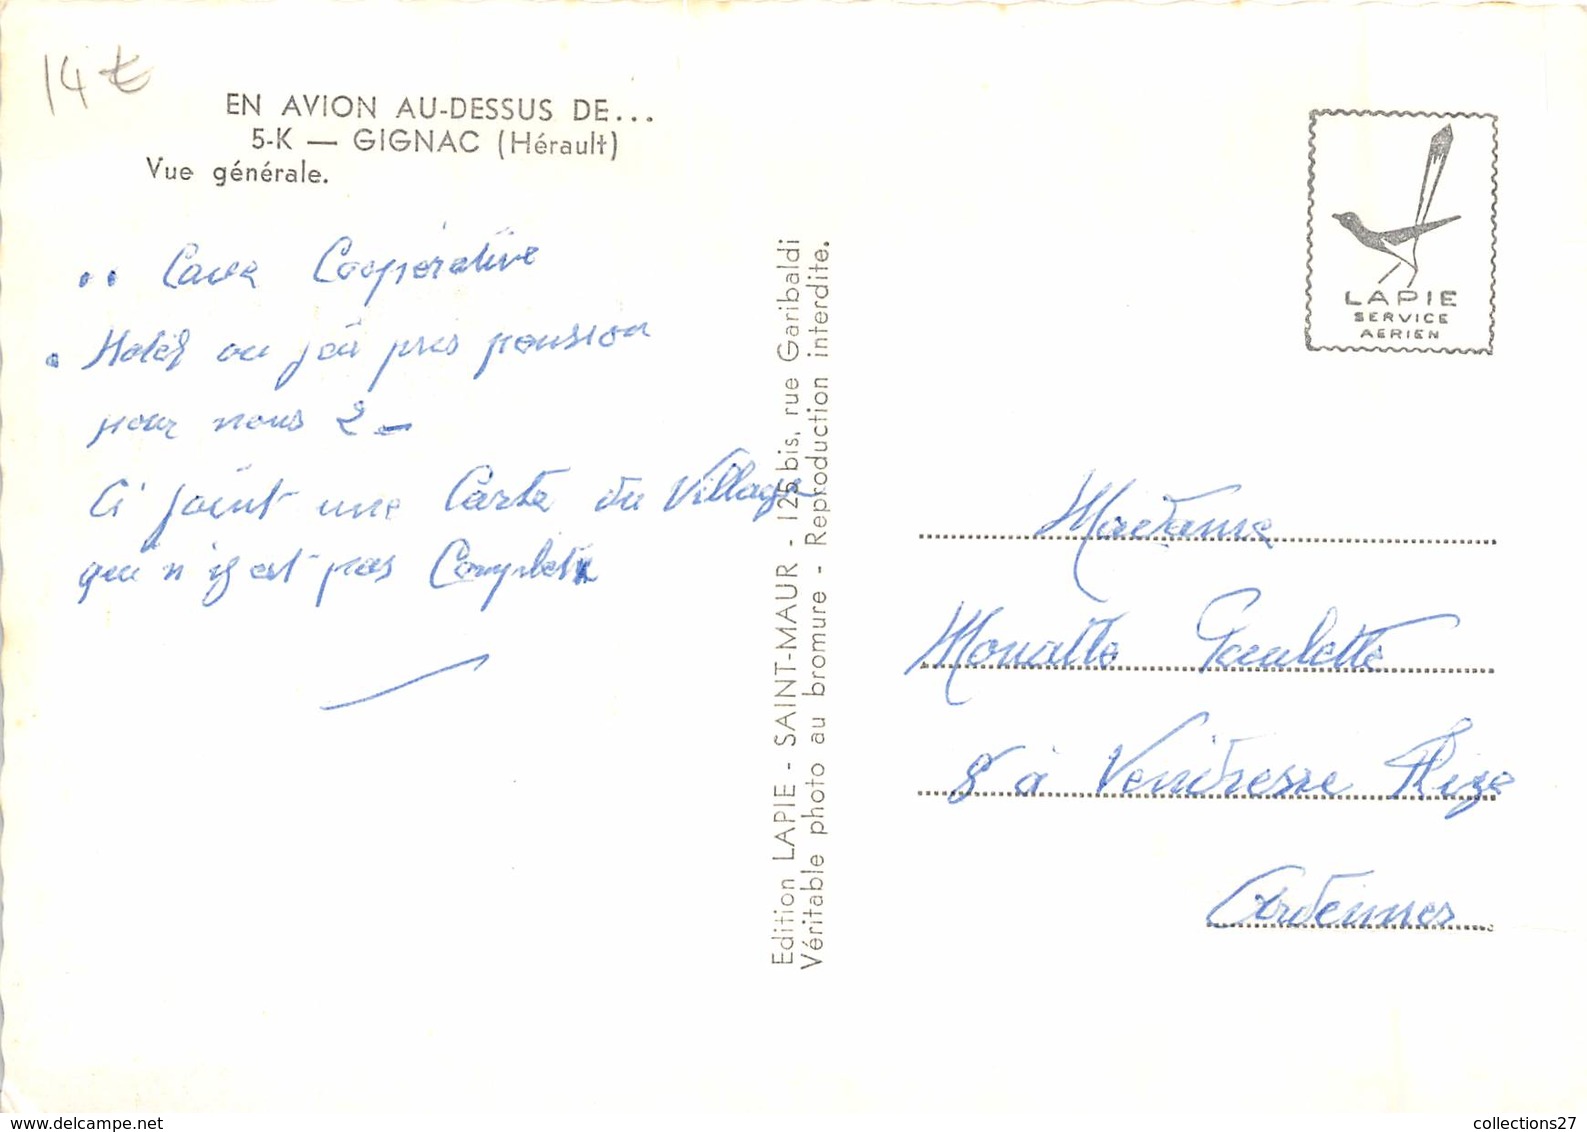 14 €
EN AVION AU-DESSUS DE...
5-K — GIGNAC (Hérault)
Vue générale.
.. Cave Coopérative
. Hotel ou j'ai pris pension
pour nous 2 _
Ci joint une Carte du Village
qui n'est pas Complete
Edition LAPIE - SAINT-MAUR - 125 bis, rue Garibaldi
Véritable photo au bromure - Reproduction interdite.
LAPIE
SERVICE
AERIEN
Madame
Paulette
à Vendresse
Ardennes
collections27